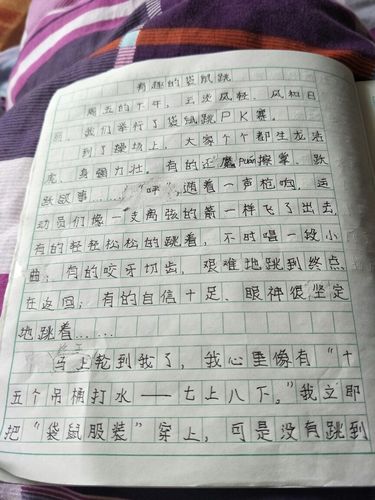 有趣的袋鼠跳
周五的下午，云淡风轻、风和日
丽，我们举行了袋鼠跳PK赛。
到了操场上，大家个个都生龙活
虎、身强力壮。有的还魔puán擦掌、跃
跃欲事……“呼”，随着一声枪响，运
动员们像一支离弦的箭一样飞了出去，
有的轻轻松松的跳着，不时唱一段小
曲；有的咬牙切齿，艰难地跳到终点
在返回；有的自信十足、眼神很坚定
地跳着……
马上轮到我了，我心里像有“十
五个吊桶打水——七上八下。”我立即
把“袋鼠服装”穿上，可是没有跳到